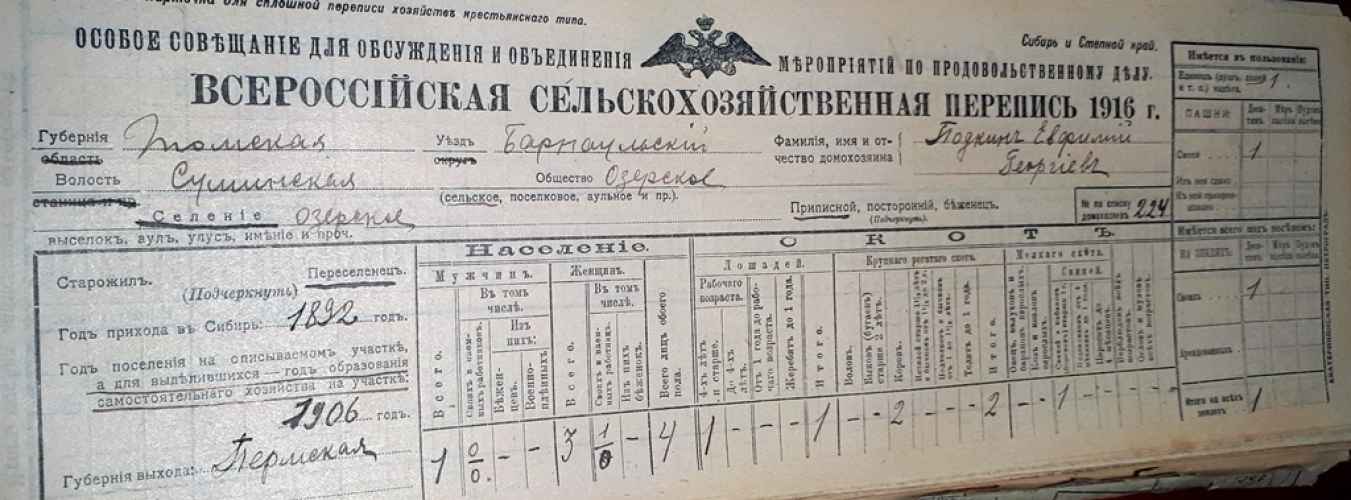 для сплошной переписи хозяйствъ крестьянскаго типа.
Сибирь и Степной край.
ОСОБОЕ СОВѢЩАНІЕ ДЛЯ ОБСУЖДЕНІЯ И ОБЪЕДИНЕНІЯ МѢРОПРІЯТІЙ ПО ПРОДОВОЛЬСТВЕННОМУ ДѢЛУ.
ВСЕРОССІЙСКАЯ СЕЛЬСКОХОЗЯЙСТВЕННАЯ ПЕРЕПИСЬ 1916 г.
Губернія Томская Уѣздъ Барнаульскій Фамилія, имя и от- Подкинъ Евфимій
область округъ чество домохозяина Георгіевъ
Волость Сушинская Общество Озерское
станица и пр. (сельское, поселковое, аульное и пр.)
Селеніе Озерское Приписной, посторонній, бѣженецъ. № по списку
(Подчеркнуть). домохозяевъ 224
выселокъ, аулъ, улусъ, имѣніе и проч.
Старожилъ. Переселенецъ.
(Подчеркнуть)
Годъ прихода въ Сибирь: 1892 годъ.
Годъ поселенія на описываемомъ участкѣ,
а для выдѣлившихся—годъ образованія
самостоятельнаго хозяйства на участкѣ:
1906 годъ.
Губернія выхода: Пермская
Населеніе.
Мужчинъ. Женщинъ. Всего лицъ обоего пола.
Всего. Въ томъ числѣ. Всего. Въ томъ числѣ.
Своихъ в наем- ныхъ работникахъ. Изъ нихъ: Своихъ в наем- ныхъ работник. Изъ нихъ бѣженокъ.
Бѣжен- цевъ. Военно- плѣнныхъ.
1 0/0. - - 3 1/0 - 4
СКОТЪ
Лошадей. Крупнаго рогатаго скота. Мелкаго скота.
Рабочаго возраста. Свиней.
4-хъ лѣтъ и старше. До 4-хъ лѣтъ. Отъ 1 года до рабо- чаго возраста. Жеребятъ до 1 года. Итого.
Воловъ. Быковъ (бугаевъ) старше 2 лѣтъ. Коровъ. Телятъ до 1 года. Итого.
1 - - - 1 - - 2 - - - 2 - - 1 - - -
Имѣется въ пользованіи:
1
ПАШНИ: Деся- тинъ.
Своей 1
Имѣется всего подъ посѣвомъ:
Деся- тинъ.
Своихъ 1
Арендованныхъ
Итого на всѣхъ земляхъ 1